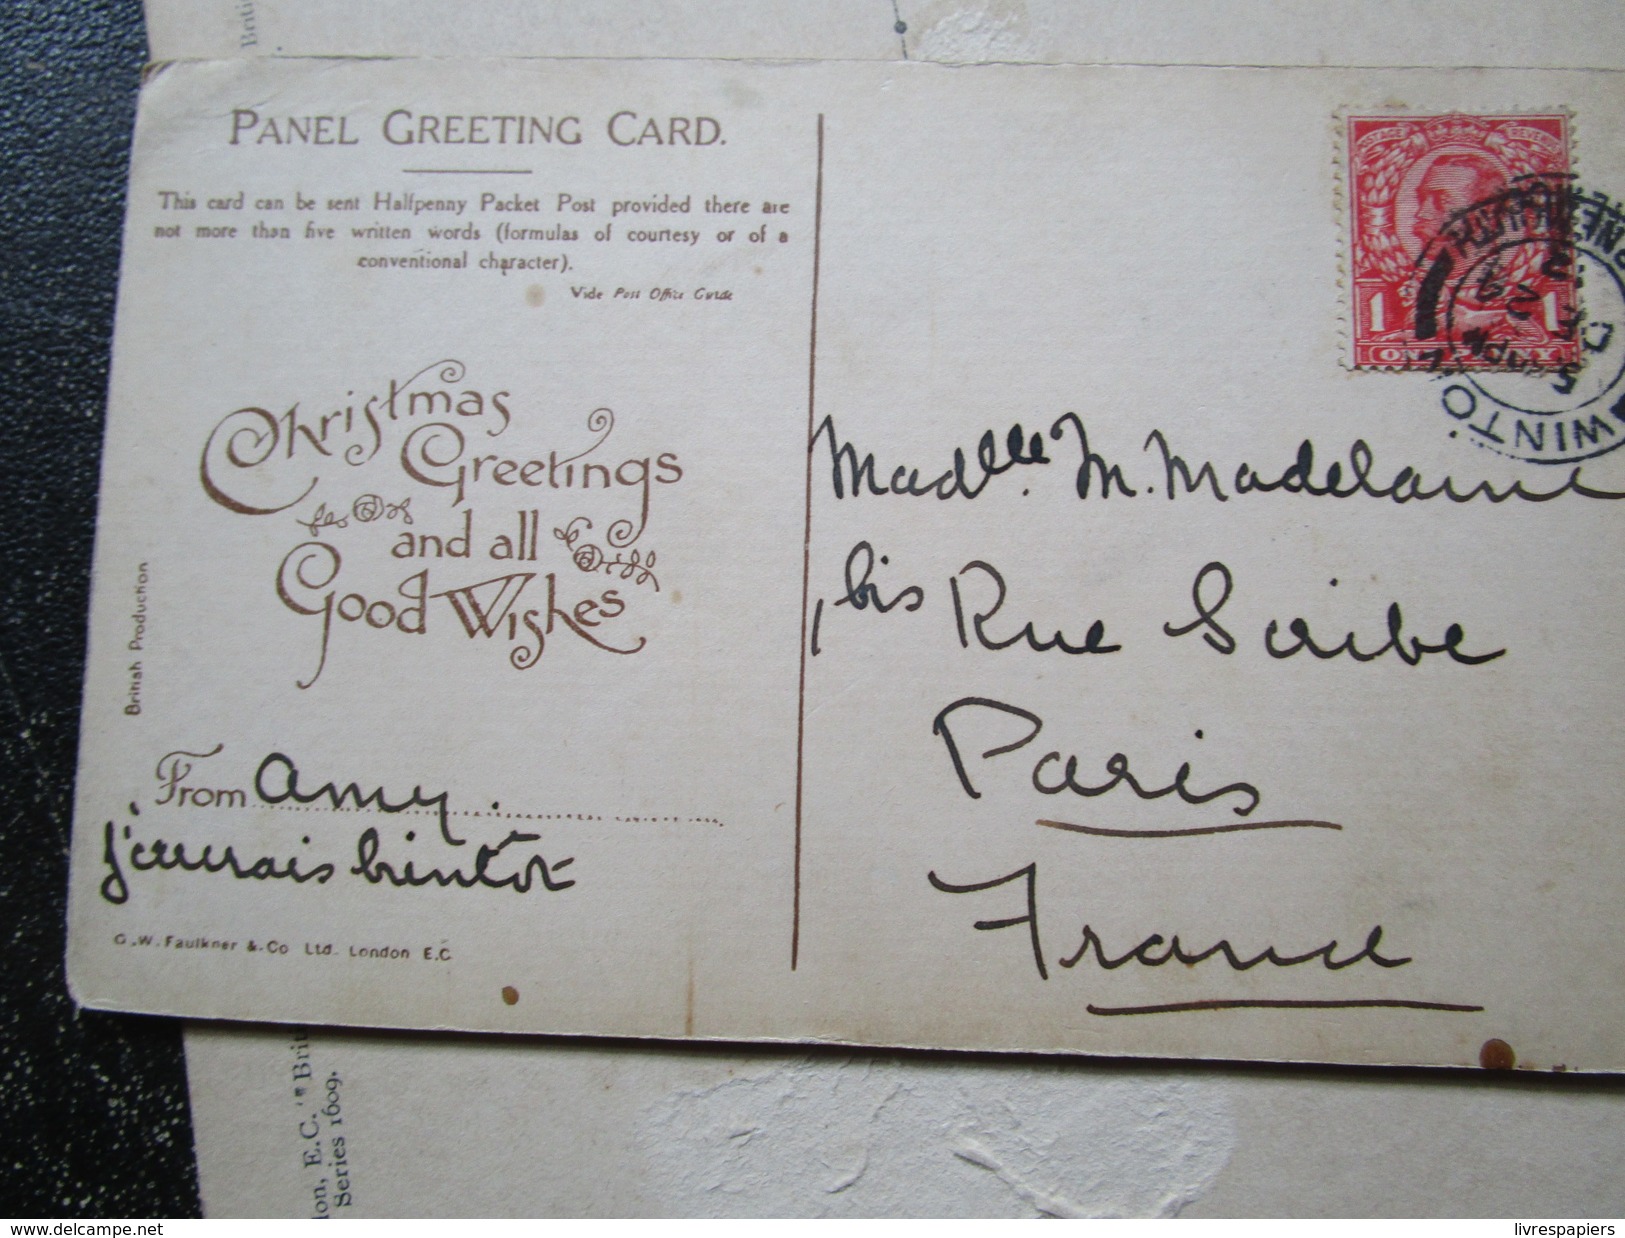 PANEL GREETING CARD.
This card can be sent Halfpenny Packet Post provided there are
not more than five written words (formulas of courtesy or of a
conventional character).
Vide Post Office Guide
Christmas
Greetings
and all
Good Wishes
British Production
From Amy.
j'ecurais bientôt
G.W. Faulkner & Co Ltd. London E.C
POSTAGE REVENUE
1 1
ONE PENNY
WINTON
BOURNEMOUTH
5 PM
DE 22
13
Madlle. M. Madelaine
1 bis Rue Scribe
Paris
France
don, E.C. "Brit
Series 1609.
Briti
delcampe.net
livrespapiers